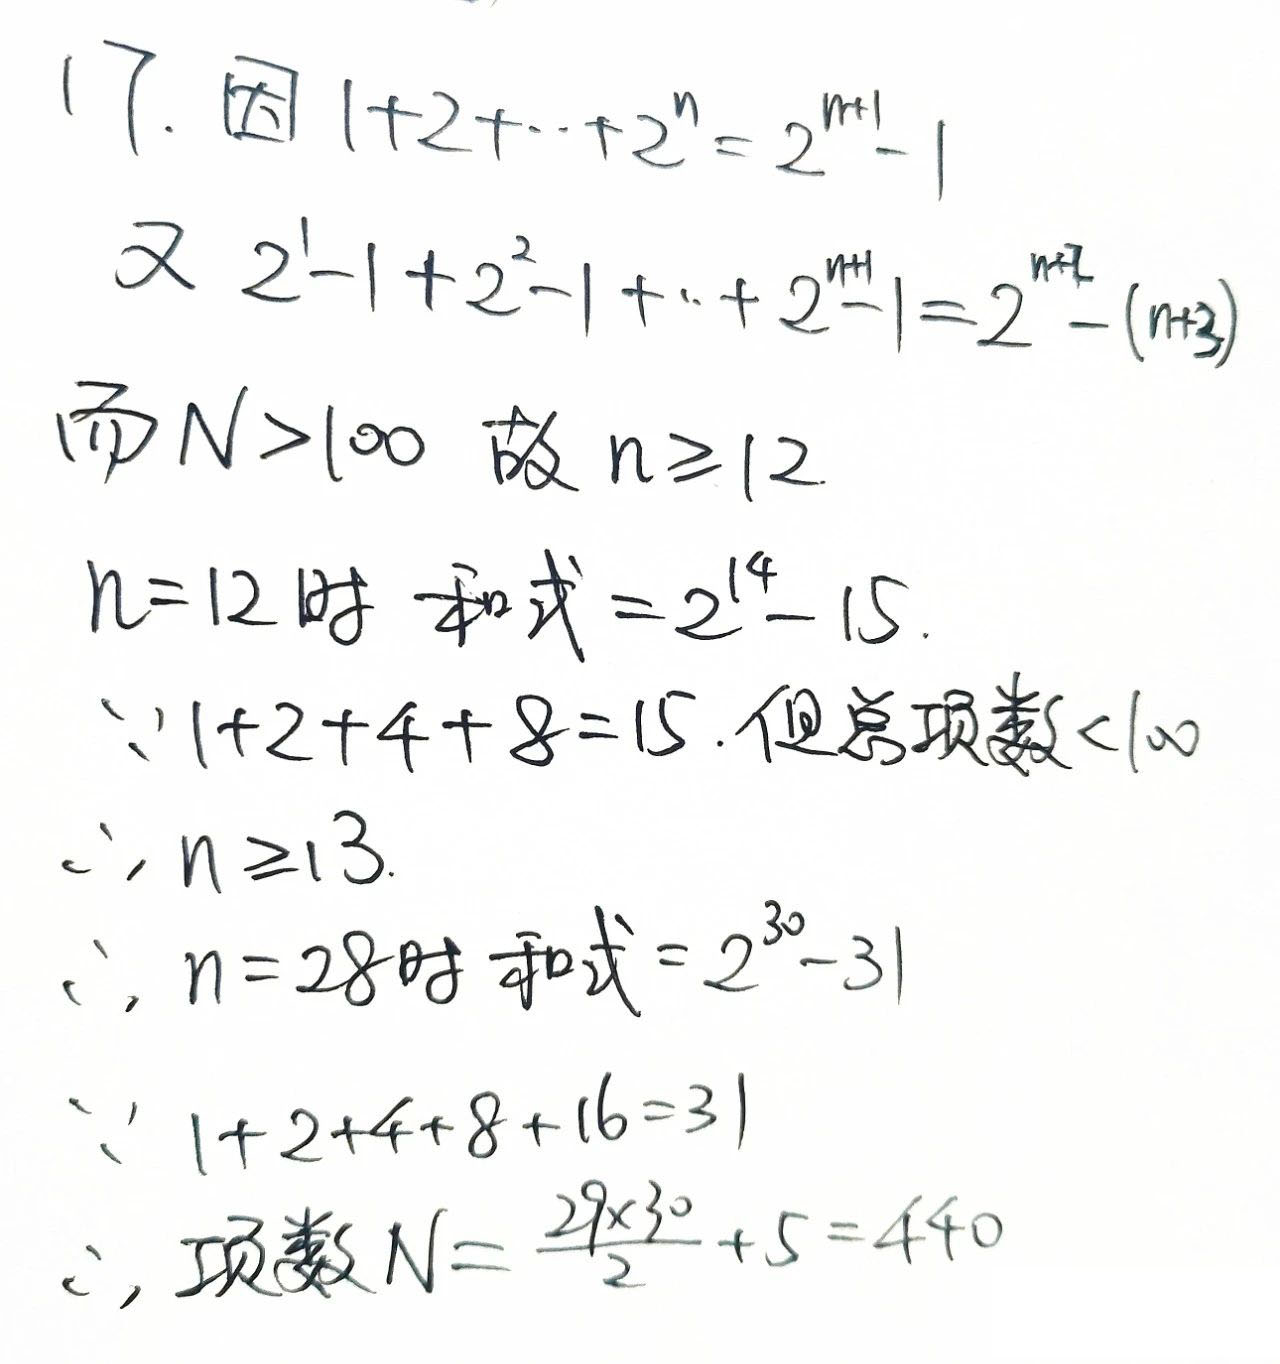 17. 因 1+2+…+2ⁿ=2ⁿ⁺¹-1
又 2¹-1+2²-1+…+2ⁿ⁺¹-1=2ⁿ⁺²-(n+3)
而 N>100 故 n≥12.
n=12时 和式=2¹⁴-15.
∵1+2+4+8=15.但总项数<100
∴ n≥13.
∴ n=28时 和式=2³⁰-31
∵ 1+2+4+8+16=31
∴ 项数N=\frac{29×30}{2}+5=440